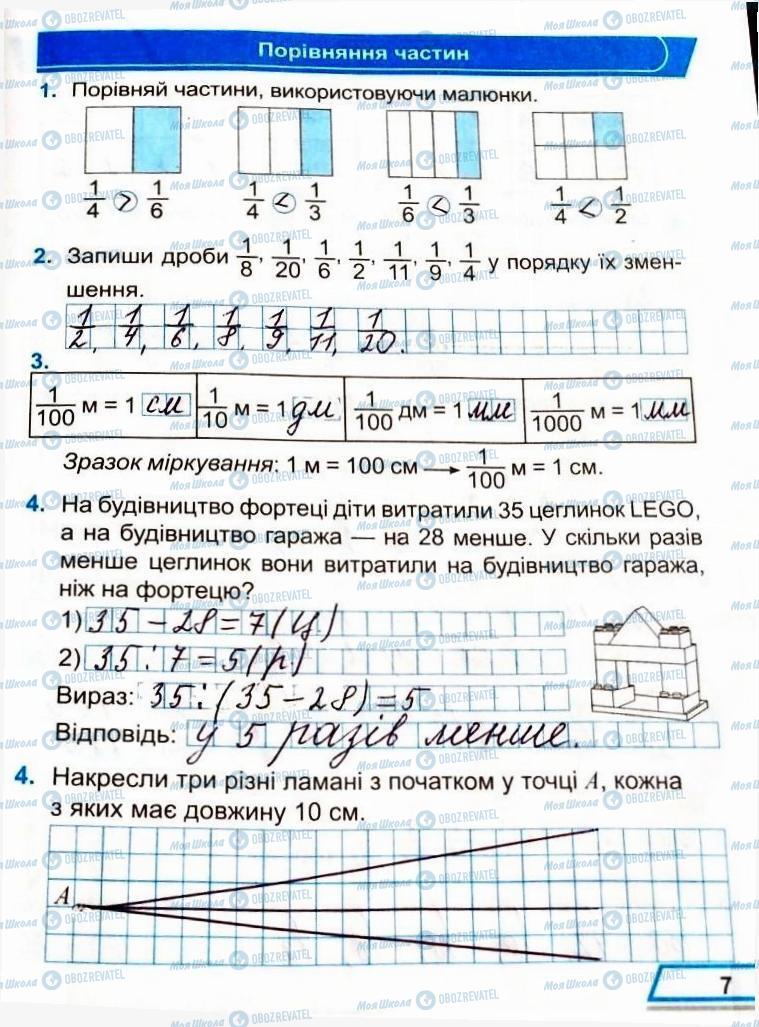 Порівняння частин
1. Порівняй частини, використовуючи малюнки.
1/4 > 1/6 1/4 < 1/3 1/6 < 1/3 1/4 < 1/2
2. Запиши дроби 1/8, 1/20, 1/6, 1/2, 1/11, 1/9, 1/4 у порядку їх змен-
шення.
1/2, 1/4, 1/6, 1/8, 1/9, 1/11, 1/20.
3.
1/100 м = 1 см 1/10 м = 1 дм 1/100 дм = 1 мм 1/1000 м = 1 мм
Зразок міркування: 1 м = 100 см → 1/100 м = 1 см.
4. На будівництво фортеці діти витратили 35 цеглинок LEGO,
а на будівництво гаража — на 28 менше. У скільки разів
менше цеглинок вони витратили на будівництво гаража,
ніж на фортецю?
1) 35 - 28 = 7 (ц.)
2) 35 : 7 = 5 (р.)
Вираз: 35 : (35 - 28) = 5
Відповідь: у 5 разів менше.
4. Накресли три різні ламані з початком у точці А, кожна
з яких має довжину 10 см.
А
7
МояШкола OBOZREVATEL